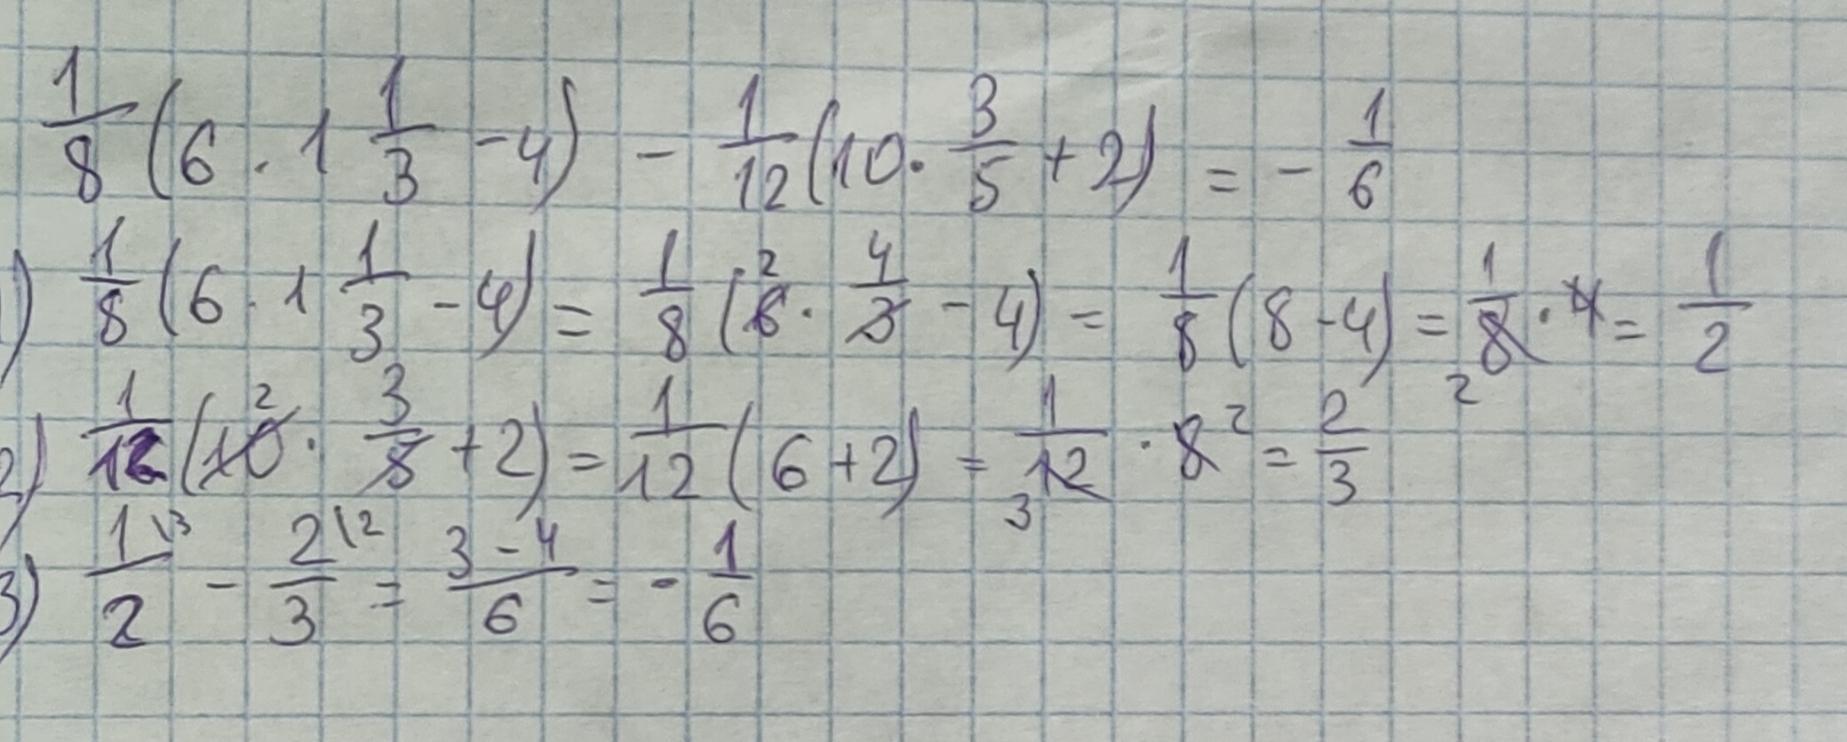 1/8 (6 · 1 1/3 - 4) - 1/12 (10 · 3/5 + 2) = - 1/6
1) 1/8 (6 · 1 1/3 - 4) = 1/8 (6 2 · 4/3 - 4) = 1/8 (8 - 4) = 1/8 2 · 4 = 1/2
2) 1/12 (10 2 · 3/5 + 2) = 1/12 (6 + 2) = 1/12 3 · 8 2 = 2/3
3) 1\3/2 - 2\2/3 = 3 - 4/6 = - 1/6